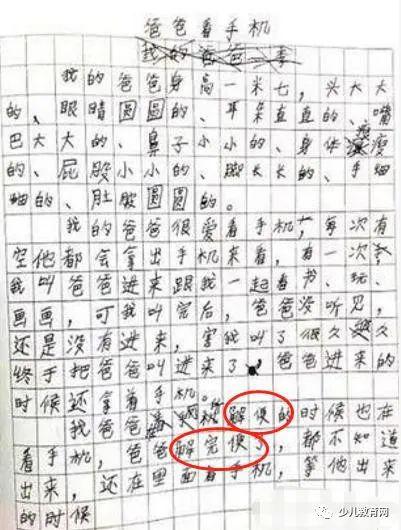 爸爸看手机
我的爸爸一事
我的爸爸身高一米七，头大大
的、眼睛圆圆的、耳朵直直的、嘴
巴大大的、鼻子小小的、身体瘦瘦
的、屁股小小的、脚长长的、手细
细的、肚股圆圆的。
我的爸爸很爱看手机，每次有
空他都会拿出手机来看，有一次，
我叫爸爸进来跟我一起看书、玩、
画画，可我叫完后，爸爸没听见，
还是没有进来，害我叫了很久
终于把爸爸叫进来了。爸爸进来的
时候还拿着手机。
我爸爸解便的时候也在
看手机，爸爸解完便了，都不知道
出来，还在里面看手机，等他出来
的时候
少儿教育网